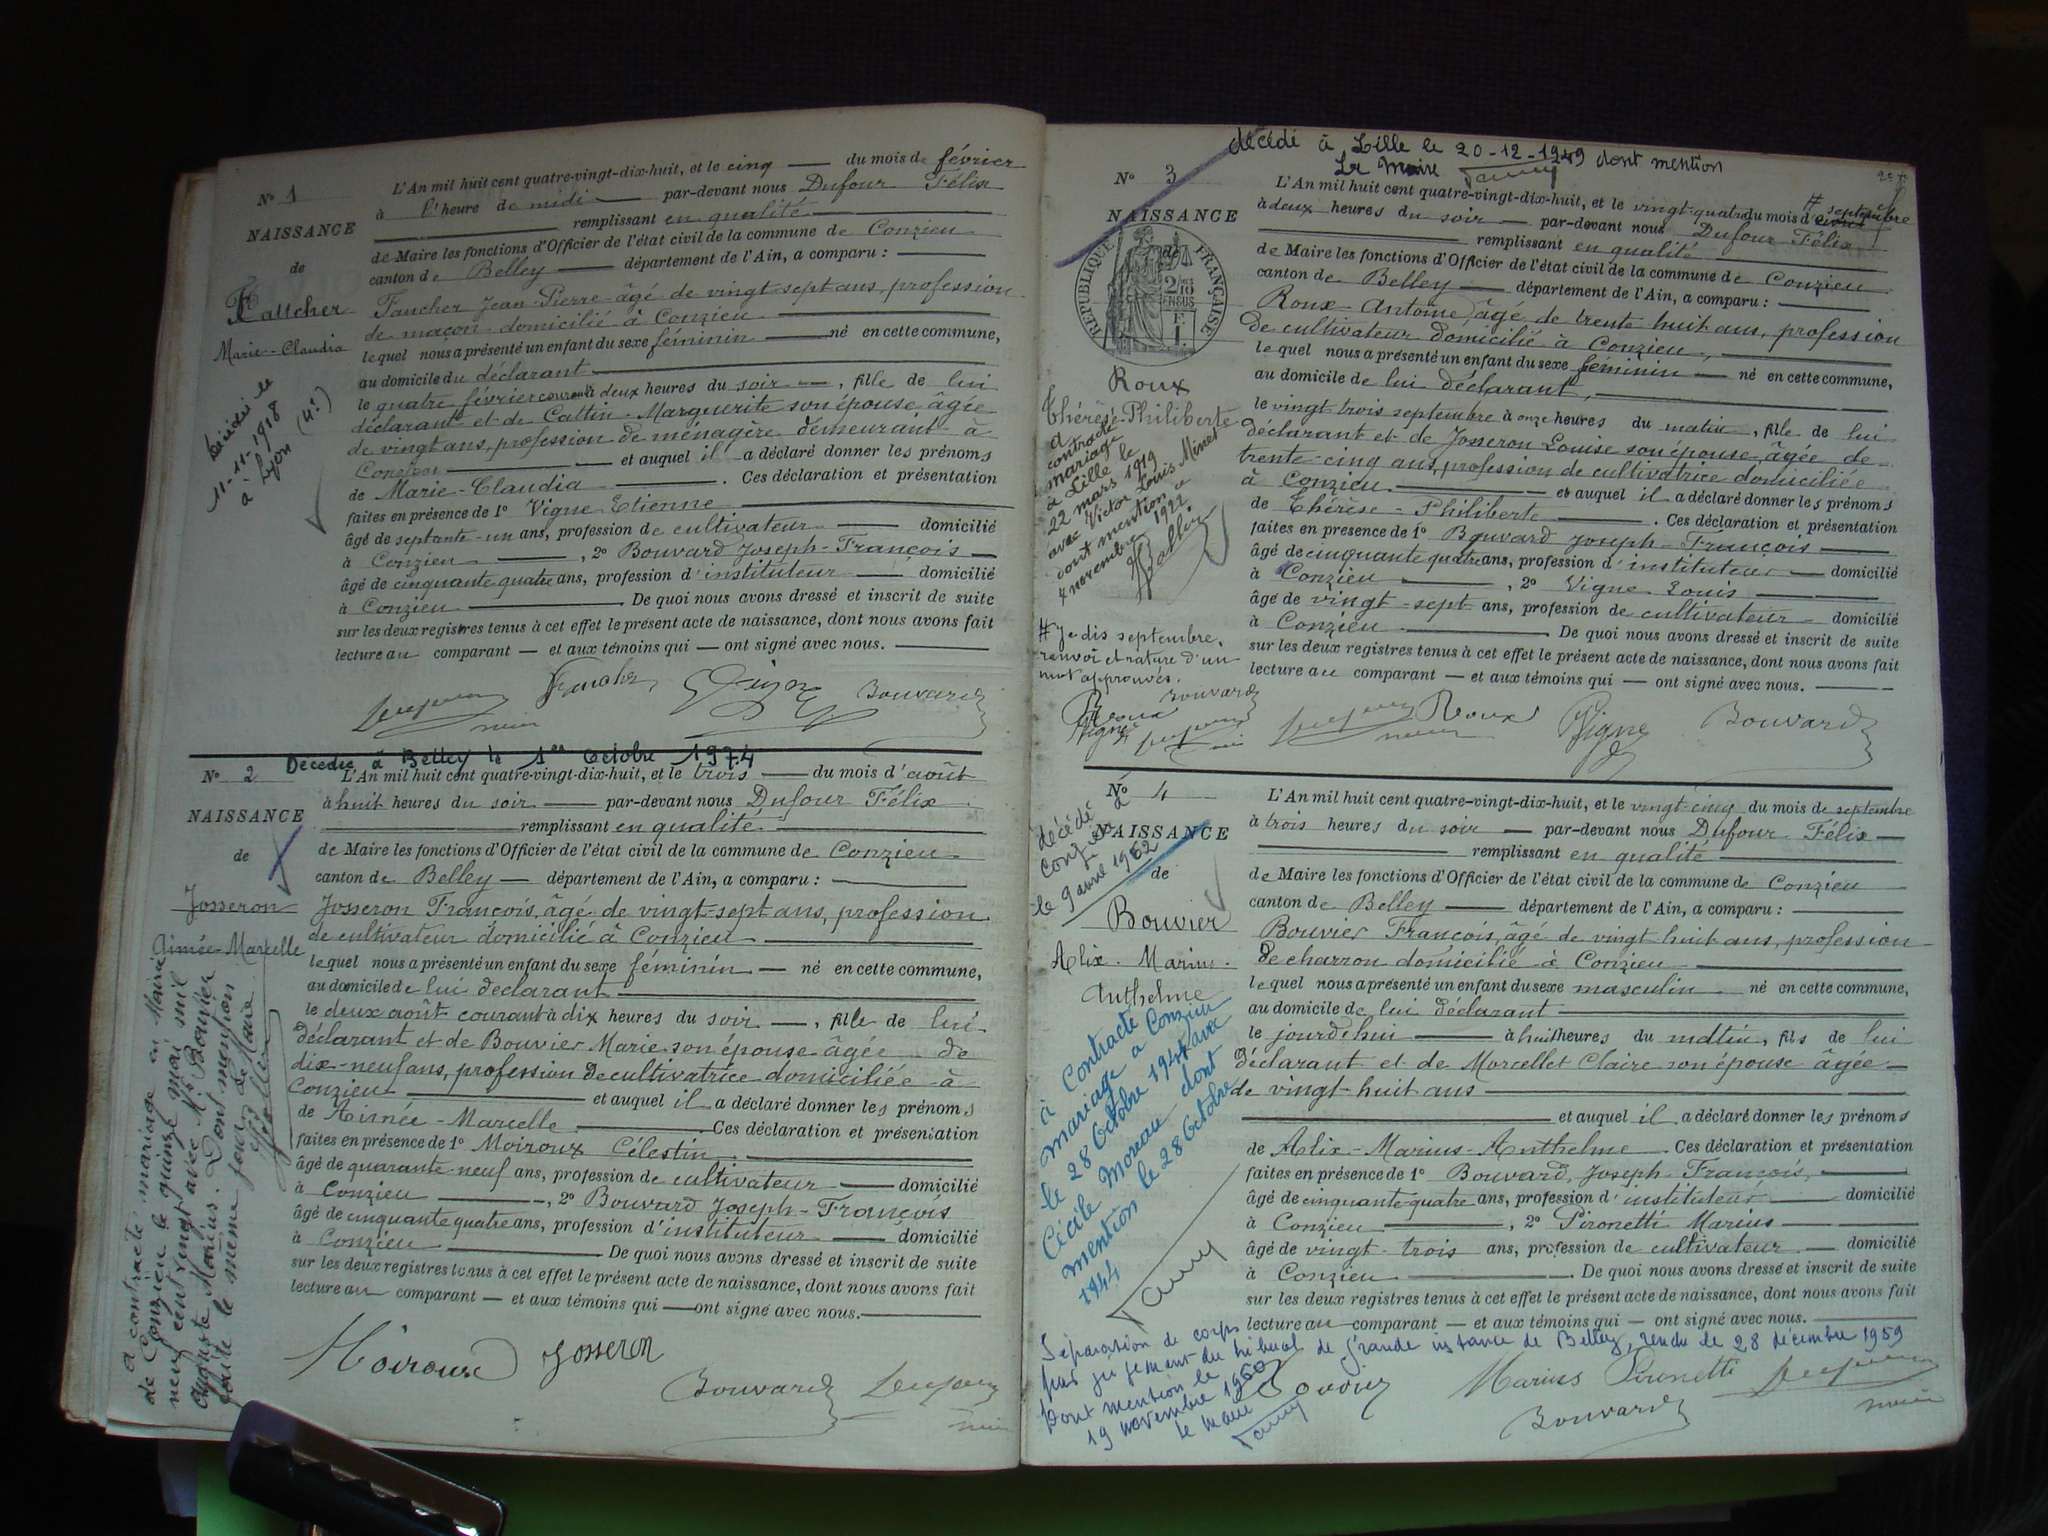 N° 1
NAISSANCE
de
Fattcher
Marie-Claudia
décédée le
11-11-1918
à Lyon (4e)
L'An mil huit cent quatre-vingt-dix-huit, et le cinq du mois de février
à l'heure de midi par-devant nous Dufour Félix
remplissant en qualité
de Maire les fonctions d'Officier de l'état civil de la commune de Conzieu
canton de Belley département de l'Ain, a comparu :
Faucher Jean-Pierre âgé de vingt sept ans, profession
de maçon domicilié à Conzieu
lequel nous a présenté un enfant du sexe féminin né en cette commune,
au domicile du déclarant
le quatre février courant à deux heures du soir, fille de lui
déclarant et de Cattin Marguerite son épouse âgée
de vingt ans, profession de ménagère demeurant à
Conzieu et auquel il a déclaré donner les prénoms
de Marie-Claudia. Ces déclaration et présentation
faites en présence de 1° Vigne Etienne
âgé de septante-un ans, profession de cultivateur domicilié
à Conzieu, 2° Bouvard Joseph-François
âgé de cinquante quatre ans, profession d'instituteur domicilié
à Conzieu. De quoi nous avons dressé et inscrit de suite
sur les deux registres tenus à cet effet le présent acte de naissance, dont nous avons fait
lecture au comparant et aux témoins qui ont signé avec nous.
Faucher Vigne Bouvard
maire
Décédée à Belley le 1er Octobre 1974
N° 2
NAISSANCE
de
Josseron
Aimée-Marcelle
a contracté mariage en Mairie
de Conzieu le quinze mai mil
neuf cent vingt avec Mr Bouvier
Auguste Marius. Dont mention
faite le même jour
Le Maire
L'An mil huit cent quatre-vingt-dix-huit, et le trois du mois d'août
à huit heures du soir par-devant nous Dufour Félix
remplissant en qualité
de Maire les fonctions d'Officier de l'état civil de la commune de Conzieu
canton de Belley département de l'Ain, a comparu :
Josseron François, âgé de vingt-sept ans, profession
de cultivateur domicilié à Conzieu
lequel nous a présenté un enfant du sexe féminin né en cette commune,
au domicile de lui déclarant
le deux août courant à dix heures du soir, fille de lui
déclarant et de Bouvier Marie son épouse âgée de
dix-neuf ans, profession de cultivatrice domiciliée à
Conzieu et auquel il a déclaré donner les prénoms
de Aimée-Marcelle. Ces déclaration et présentation
faites en présence de 1° Moiroux Célestin
âgé de quarante-neuf ans, profession de cultivateur domicilié
à Conzieu, 2° Bouvard Joseph-François
âgé de cinquante quatre ans, profession d'instituteur domicilié
à Conzieu. De quoi nous avons dressé et inscrit de suite
sur les deux registres tenus à cet effet le présent acte de naissance, dont nous avons fait
lecture au comparant et aux témoins qui ont signé avec nous.
Moiroux Josseron
Bouvard
décédé à Lille le 20-12-1949 dont mention
Le Maire
N° 3
NAISSANCE
de
RÉPUBLIQUE FRANÇAISE
2/10 EN SUS
Roux
Thérèse-Philiberte
a
contracté
mariage
à Lille le
22 mars 1919
avec Victor Louis Minet
dont mention le
4 novembre 1922
# Je dis septembre,
renvoi et rature d'un
mot approuvés.
Roux Bouvard
Vigne
L'An mil huit cent quatre-vingt-dix-huit, et le vingt-quatre du mois d # septembre
à deux heures du soir par-devant nous Dufour Félix
remplissant en qualité
de Maire les fonctions d'Officier de l'état civil de la commune de Conzieu
canton de Belley département de l'Ain, a comparu :
Roux Antoine, âgé de trente huit ans, profession
de cultivateur domicilié à Conzieu,
lequel nous a présenté un enfant du sexe féminin né en cette commune,
au domicile de lui déclarant,
le vingt trois septembre à onze heures du matin, fille de lui
déclarant et de Josseron Louise son épouse âgée de
trente-cinq ans, profession de cultivatrice domiciliée
à Conzieu et auquel il a déclaré donner les prénoms
de Thérèse-Philiberte. Ces déclaration et présentation
faites en presence de 1° Bouvard Joseph-François
âgé de cinquante quatre ans, profession d'instituteur domicilié
à Conzieu, 2° Vigne Louis
âgé de vingt-sept ans, profession de cultivateur domicilié
à Conzieu. De quoi nous avons dressé et inscrit de suite
sur les deux registres tenus à cet effet le présent acte de naissance, dont nous avons fait
lecture au comparant et aux témoins qui ont signé avec nous.
Roux Vigne Bouvard
N° 4
NAISSANCE
de
décédé à
Conzieu
le 9 avril 1962
Bouvier
Alix-Marius-
Anthelme
à Contracté
mariage à Conzieu
le 28 Octobre 1944 avec
Cécile Moreau dont
mention le 28 Octobre
1944
L'An mil huit cent quatre-vingt-dix-huit, et le vingt-cinq du mois de septembre
à trois heures du soir par-devant nous Dufour Félix
remplissant en qualité
de Maire les fonctions d'Officier de l'état civil de la commune de Conzieu
canton de Belley département de l'Ain, a comparu :
Bouvier François, âgé de vingt huit ans, profession
de charron domicilié à Conzieu
lequel nous a présenté un enfant du sexe masculin né en cette commune,
au domicile de lui déclarant
le jourd'hui à huit heures du matin, fils de lui
déclarant et de Marcellet Claire son épouse âgée
de vingt-huit ans
et auquel il a déclaré donner les prénoms
de Alix-Marius-Anthelme. Ces déclaration et présentation
faites en présence de 1° Bouvard, Joseph-François,
âgé de cinquante quatre ans, profession d'instituteur domicilié
à Conzieu, 2° Pironetti Marius
âgé de vingt-trois ans, profession de cultivateur domicilié
à Conzieu. De quoi nous avons dressé et inscrit de suite
sur les deux registres tenus à cet effet le présent acte de naissance, dont nous avons fait
lecture au comparant et aux témoins qui ont signé avec nous.
Séparation de corps
par jugement du tribunal de grande instance de Belley, rendu le 28 décembre 1959
Dont mention le
19 novembre 1960
le maire
Bouvier Marius Pironetti
Bouvard
maire